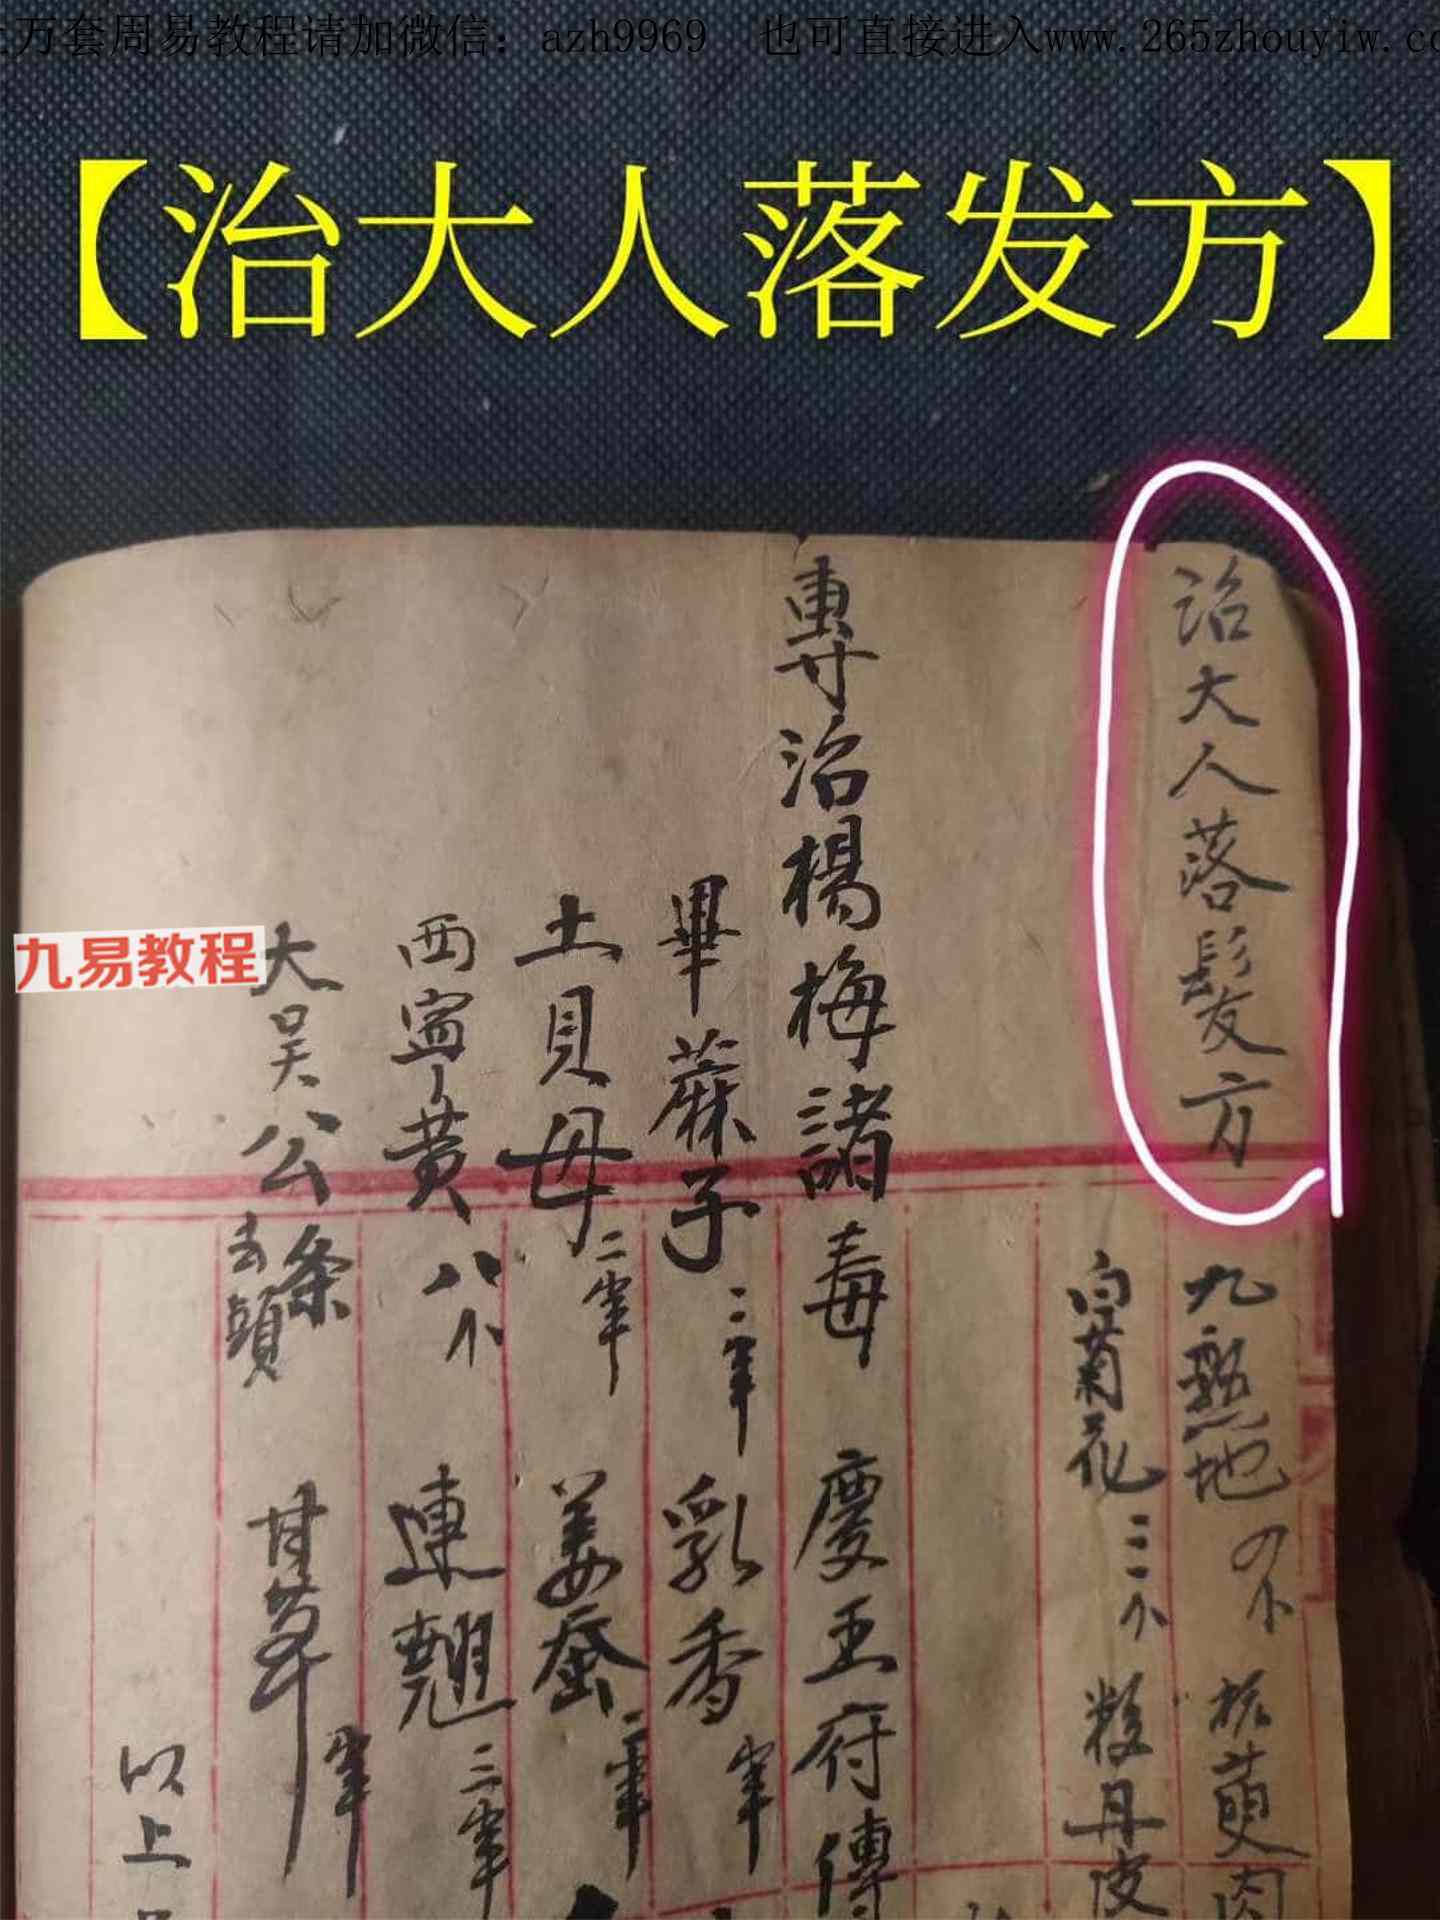 万套周易教程请加微信：azh9969 也可直接进入www.265zhouyiw.co
【治大人落发方】
治大人落髮方
九熟地 萸肉
白菊花 三个 粉丹皮
專治楊梅諸毒 慶王府傳
畢蔴子 二 乳香
土貝母 二 姜蚕 二
西寧黄 八个 連翹 三
大吴公 条 去頭 甘草
以上
九易教程